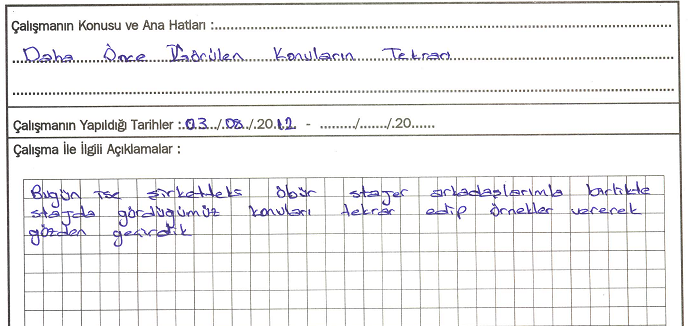 Çalışmanın Konusu ve Ana Hatları :
Daha Önce Görülen Konuların Tekrarı
Çalışmanın Yapıldığı Tarihler : 03../.08./.2012 - ........./......./.20......
Çalışma İle İlgili Açıklamalar :
Bugün ise şirketteki öbür stajer arkadaşlarımla birlikte
stajda gördüğümüz konuları tekrar edip örnekler vererek
gözden geçirdik